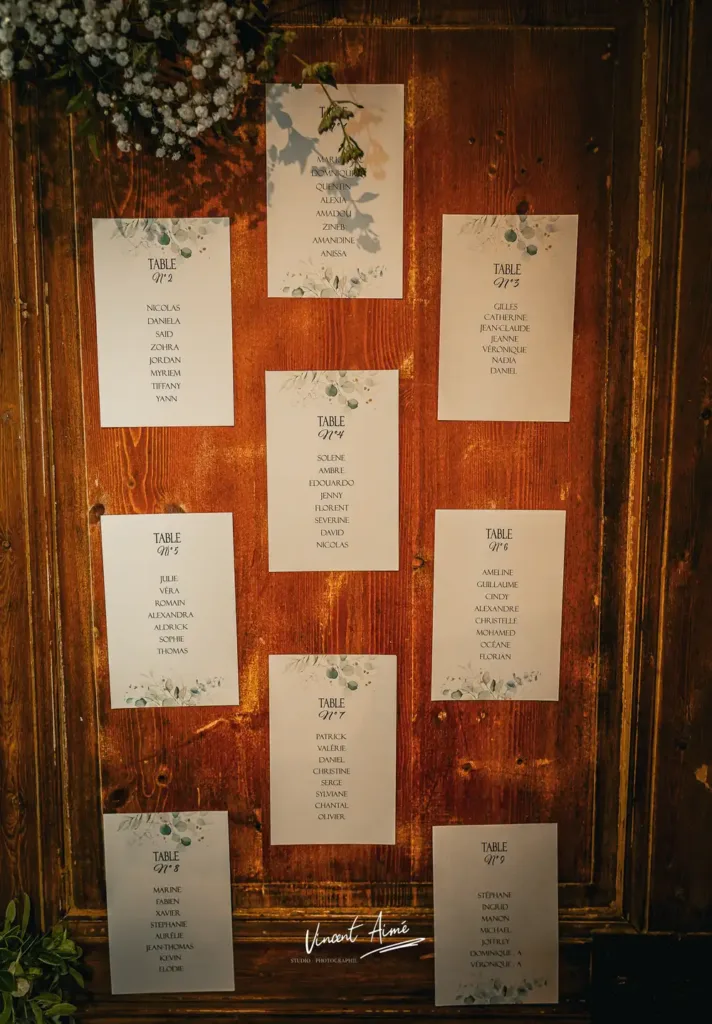 DOMINIQUE
QUENTIN
ALEXIA
AMADOU
ZINEB
AMANDINE
ANISSA
TABLE
N°2
NICOLAS
DANIELA
SAID
ZOHRA
JORDAN
MYRIEM
TIFFANY
YANN
TABLE
N°3
GILLES
CATHERINE
JEAN-CLAUDE
JEANNE
VÉRONIQUE
NADIA
DANIEL
TABLE
N°4
SOLENE
AMBRE
EDOUARDO
JENNY
FLORENT
SEVERINE
DAVID
NICOLAS
TABLE
N°5
JULIE
VÉRA
ROMAIN
ALEXANDRA
ALDRICK
SOPHIE
THOMAS
TABLE
N°6
AMELINE
GUILLAUME
CINDY
ALEXANDRE
CHRISTELLE
MOHAMED
OCÉANE
FLORIAN
TABLE
N°7
PATRICK
VALÉRIE
DANIEL
CHRISTINE
SERGE
SYLVIANE
CHANTAL
OLIVIER
TABLE
N°8
MARINE
FABIEN
XAVIER
STEPHANIE
AURÉLIE
JEAN-THOMAS
KEVIN
ELODIE
TABLE
N°9
STÉPHANE
INGRID
MANON
MICHAEL
JOFFREY
DOMINIQUE . A
VÉRONIQUE . A
Vincent Aimé
STUDIO PHOTOGRAPHIE